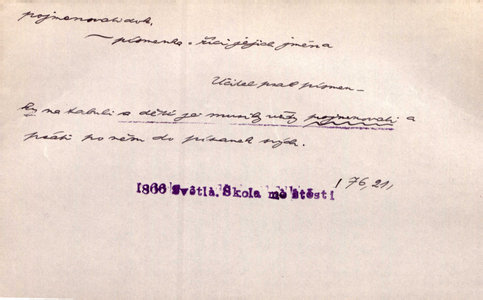 pojmenovati dok.
— písmenka = říci jejich jména
Učitel psal písmen-
ky na tabuli a děti je musily vždy pojmenovati a
psáti po něm do písanek svých.
1866 Světlá. Škola mé štěstí 176, 21,